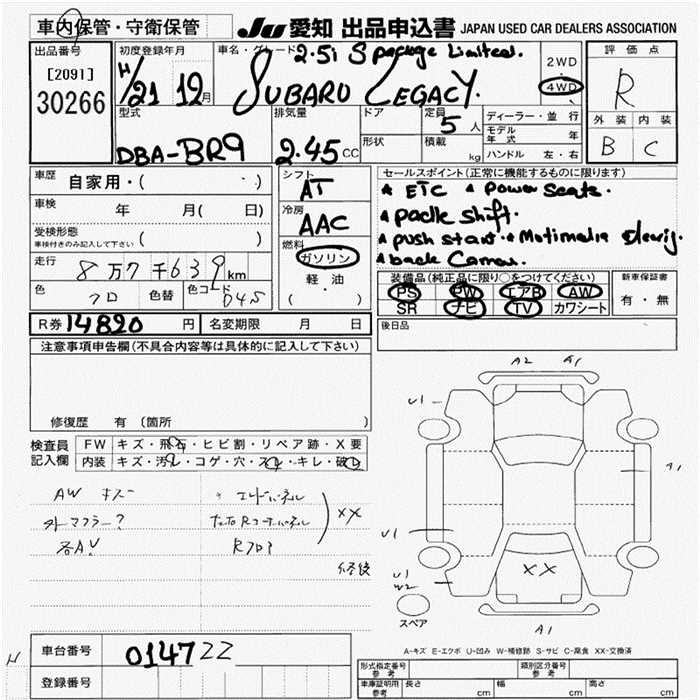 車内保管・守衛保管
JU 愛知 出品申込書 JAPAN USED CAR DEALERS ASSOCIATION
出品番号
[2091]
30266
初度登録年月
H/21 12月
車名・グレード 2.5i S package Limited.
SUBARU LEGACY.
2WD
4WD
評価点
R
外装 内装
B C
型式
DBA-BR9
排気量
2.45 CC
ドア
形状
定員
5 人
積載
kg
ディーラー・並行
モデル年式 年
ハンドル 左・右
車歴
自家用・( )
車検 年 月( 日)
受検形態
車検付きのみ記入して下さい ( )
走行 8万7千639km
色 クロ 色替 色コード D4S
シフト
AT
冷房
AAC
燃料
ガソリン
軽油
セールスポイント(正常に機能するものに限ります)
★ ETC ★ Power Seats.
★ padle shift.
★ push start.
★ back Camera.
装備品(純正品に限り○をつけてください)
PS PW エアB AW
SR ナビ TV カワシート
新車保証書
有・無
R券 14820 円 名変期限 月 日
後日品
注意事項申告欄(不具合内容等は具体的に記入して下さい)
修復歴 有 〔箇所
検査員記入欄
FW キズ・飛石・ヒビ割・リペア跡・X要
内装 キズ・汚れ・コゲ・穴・スレ・キレ・破れ
AW キズ
外マフラー?
各AU
エンドパネル
XX
Rフロア
修後
A2 A1
U1
A1
U1
XX
U1
W2
スペア
A1
A-キズ E-エクボ U-凹み W-補修跡 S-サビ C-腐食 XX-交換済
車台番号 014722
登録番号
型式指定番号 参考
類別区分番号 参考
車庫証明用 参考 長さ cm 幅 cm 高さ cm